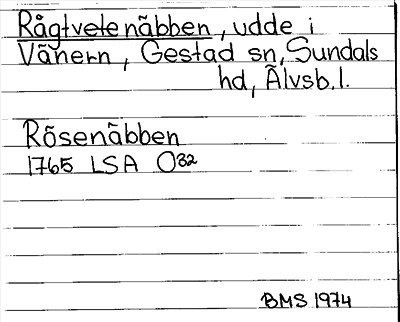 Rågtvetenäbben, udde i
Vänern, Gestad sn, Sundals
hd, Älvsb. l.
Rösenäbben
1765 LSA O32
BMS 1974